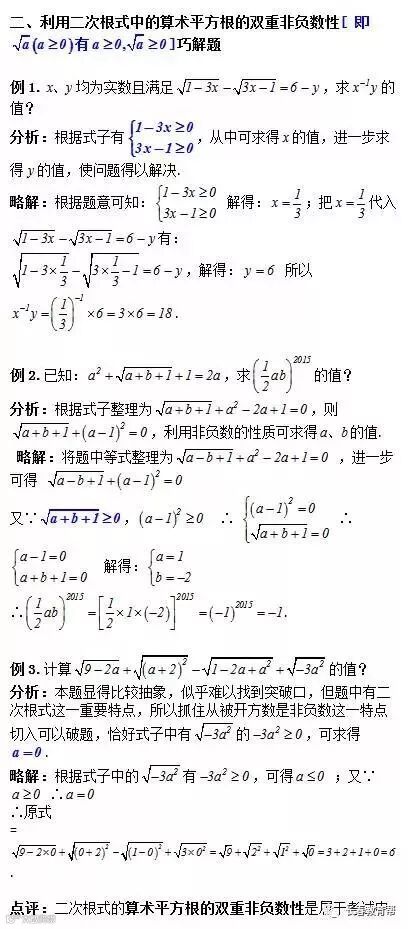 二、利用二次根式中的算术平方根的双重非负数性[ 即
√a(a≥0)有a≥0,√a≥0]巧解题
例1. x、y均为实数且满足√(1-3x)-√(3x-1)=6-y，求x⁻¹y的
值？
分析：根据式子有{1-3x≥0 3x-1≥0，从中可求得x的值，进一步求
得y的值，使问题得以解决.
略解：根据题意可知：{1-3x≥0 3x-1≥0 解得：x=1/3；把x=1/3代入
√(1-3x)-√(3x-1)=6-y有：
√(1-3×1/3)-√(3×1/3-1)=6-y，解得：y=6 所以
x⁻¹y=(1/3)⁻¹×6=3×6=18.
例2.已知：a²+√(a+b+1)+1=2a，求(1/2ab)²⁰¹⁵的值？
分析：根据式子整理为√(a+b+1)+a²-2a+1=0，则
√(a+b+1)+(a-1)²=0，利用非负数的性质可求得a、b的值.
略解：将题中等式整理为√(a-b+1)+a²-2a+1=0 ，进一步
可得 √(a-b+1)+(a-1)²=0
又∵√(a+b+1)≥0，(a-1)²≥0 ∴ {(a-1)²=0 √(a+b+1)=0 ∴
{a-1=0 a+b+1=0 解得：{a=1 b=-2
∴(1/2ab)²⁰¹⁵=[1/2×1×(-2)]²⁰¹⁵=(-1)²⁰¹⁵=-1.
例3.计算√(9-2a)+√((a+2)²)-√(1-2a+a²)+√(-3a²)的值？
分析：本题显得比较抽象，似乎难以找到突破口，但题中有二
次根式这一重要特点，所以抓住从被开方数是非负数这一特点
切入可以破题，恰好式子中有√(-3a²)的-3a²≥0，可求得
a=0.
略解：根据式子中的√(-3a²)有-3a²≥0，可得a≤0 ；又∵
a≥0 ∴a=0
∴原式
=
√(9-2×0)+√((0+2)²)-√((1-0)²)+√(3×0²)=√9+√(2²)+√(1²)+√0=3+2+1+0=6
.
点评：二次根式的算术平方根的双重非负数性是属于考试中
长春教育帮